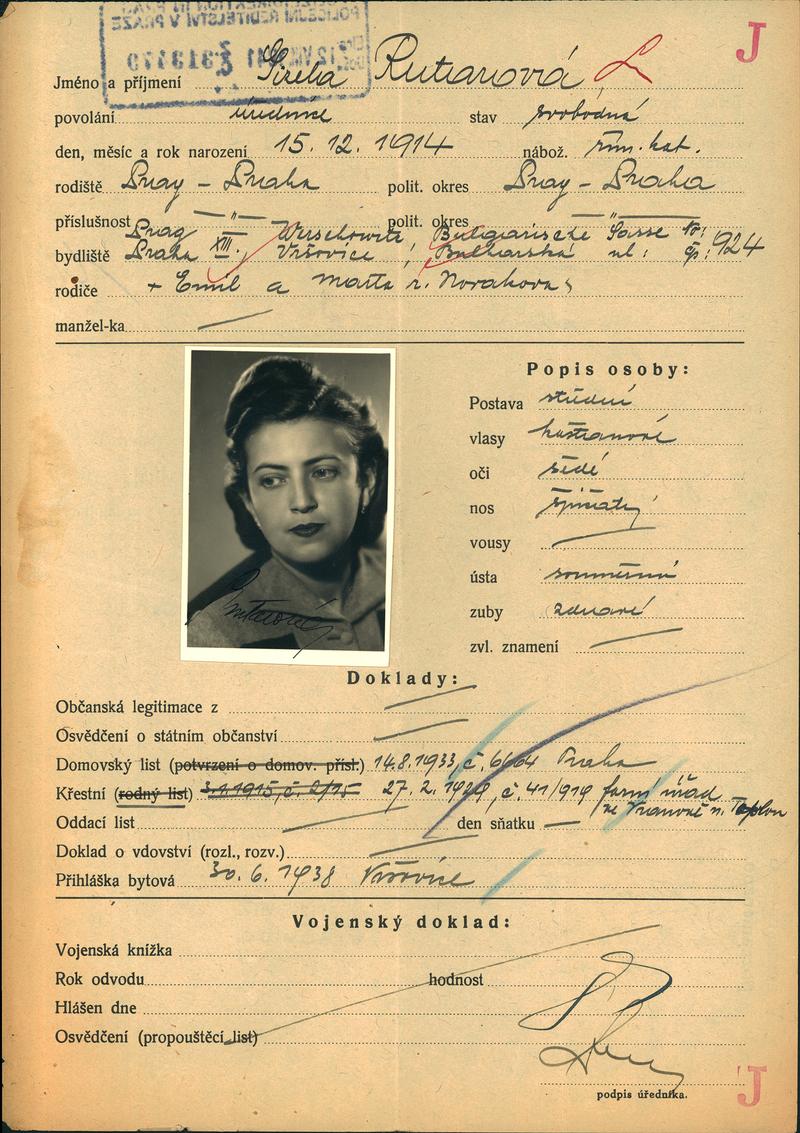 J
Jméno a příjmení Gizela Rutarová
povolání úřednice stav svobodná
den, měsíc a rok narození 15. 12. 1914 nábož. řím. kat.
rodiště Prag – Praha polit. okres Prag – Praha
příslušnost — " — polit. okres — " —
Prag XIII., Werschowitz, Bulgarische Gasse Nr:
bydliště Praha Vršovice, Bulharská ul: čp: 924
rodiče + Emil a Marta r. Novákova
manžel-ka
Popis osoby:
Postava střední
vlasy kaštanové
oči šedé
nos špičatý
vousy
ústa souměrná
zuby zdravé
zvl. znamení
Doklady:
Občanská legitimace z
Osvědčení o státním občanství
Domovský list (potvrzení o domov. přísl.) 14.8.1933, č. 6664 Praha
Křestní (rodný list) 3.1.1915, č. 2/15 27. 2. 1929, č. 41/919 farní úřad
ve Vranově n. Teplou
Oddací list den sňatku —
Doklad o vdovství (rozl., rozv.)
Přihláška bytová 30. 6. 1938 Vršovice
Vojenský doklad:
Vojenská knížka
Rok odvodu hodnost
Hlášen dne
Osvědčení (propouštěcí list)
podpis úředníka.
J